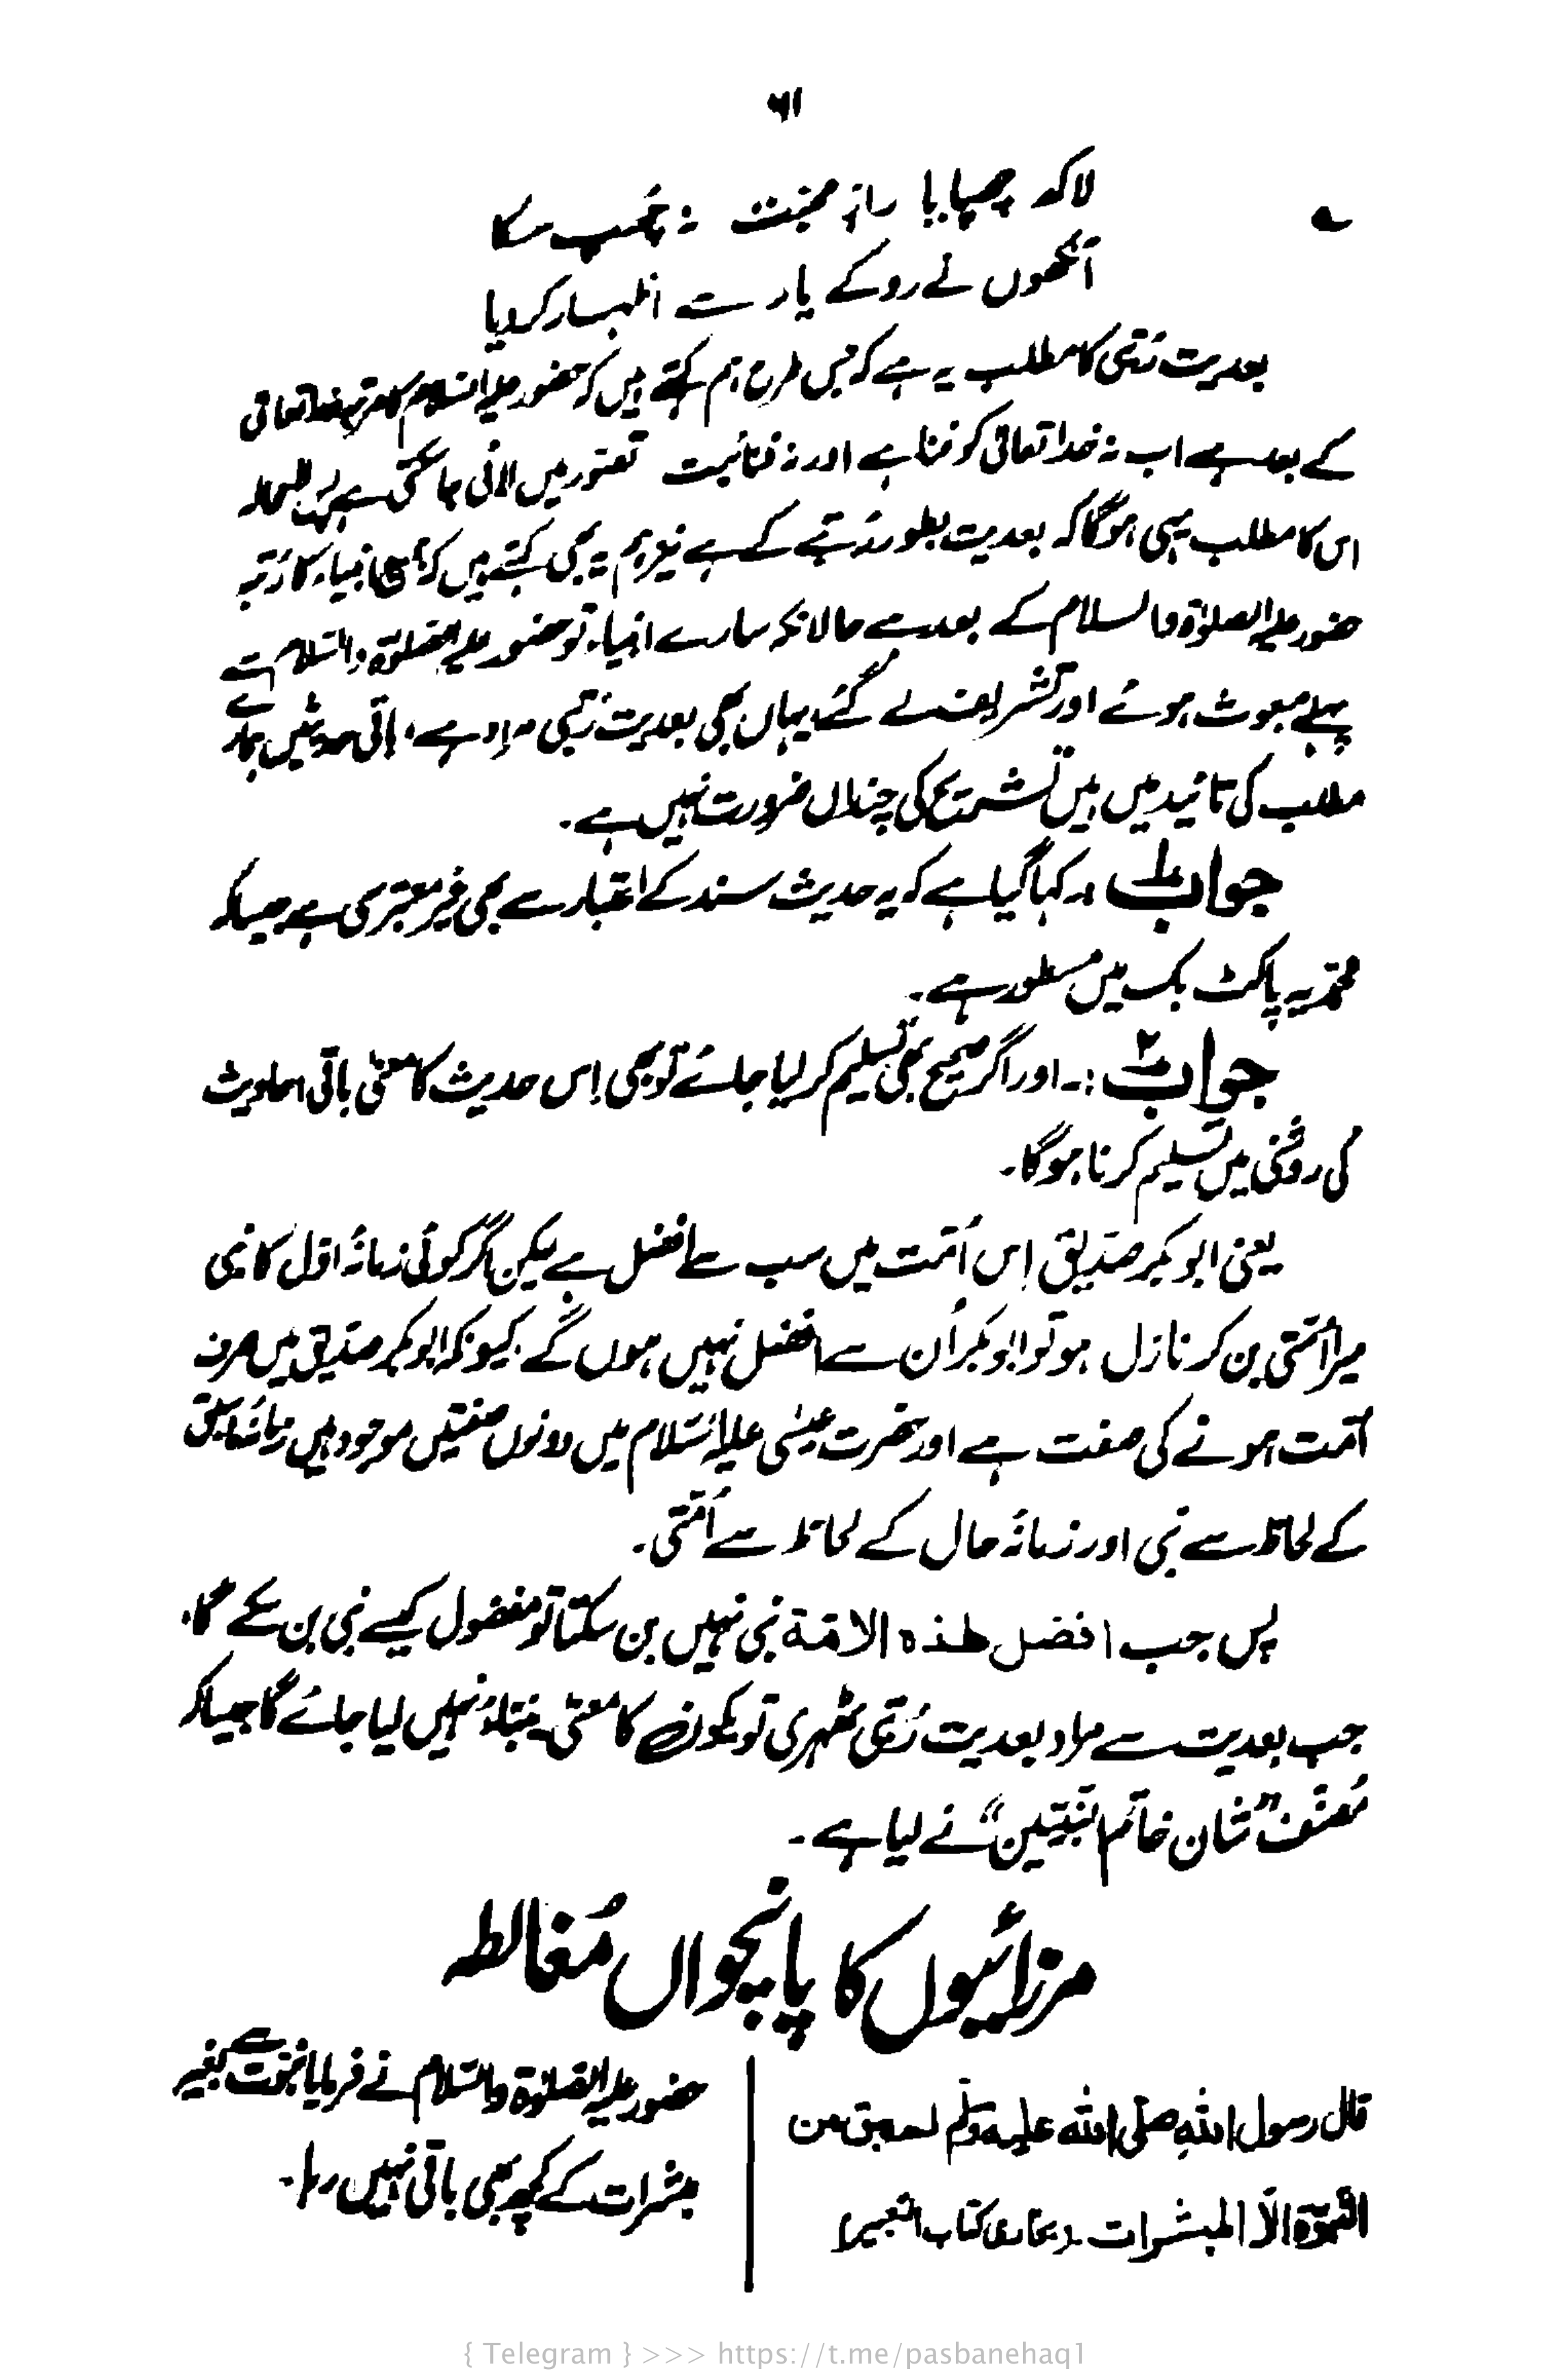 ۶۱
لاکھ چھپایا راز محبت نہ چُھپ سکا
آنکھوں نے رو کے یار سے اظہار کر دیا
بعدیت رُتبی کا مطلب یہ ہے کہ جس طرح ہم کہتے ہیں کہ حضور علیہ السلام کا مرتبہ خدا تعالیٰ
کے بعد ہے اب نہ خدا تعالیٰ کو فنا ہے اور نہ فنائیت تصور میں لائی جا سکتی ہے پس لامحالہ
اس کا مطلب یہی ہوگا کہ بعدیت بطور رُتبے کے ہے نیز ہم یہ بھی کہتے ہیں کہ باقی انبیاء کا رُتبہ
حضور علیہ الصلوٰۃ والسلام کے بعد ہے حالانکہ سارے انبیاء تو حضور علیہ الصلوٰۃ والسلام سے
پہلے مبعوث ہوئے اور تشریف لے گئے یہاں بھی بعدیت رُتبی مراد ہے، باقی حدیثیں ہمارے
مطلب کی تائید میں ہیں تشریح کی چنداں ضرورت نہیں ہے۔
جواب ۱ :۔ کہا گیا ہے کہ یہ حدیث سند کے اعتبار سے بھی غیر معتبر سی ہے جیسا کہ
محمدیہ پاکٹ بک میں مسطور ہے۔
جواب ۲ :۔ اور اگر صحیح بھی تسلیم کر لیا جائے تو بھی اِس حدیث کا معنیٰ باقی احادیث
کی روشنی میں تسلیم کرنا ہوگا۔
یعنی ابو بکر صدیق اِس اُمّت میں سب سے افضل ہے لیکن اگر کوئی زمانۂ اوّل کا نبی
میرا اُمّتی بن کر نازل ہو تو ابو بکر اُن سے افضل نہیں ہوں گے، کیونکہ ابو بکر صدیق میں صرف
اُمّت ہونے کی صفت ہے اور حضرت عیسیٰ علیہ السّلام میں دونوں صفتیں موجود ہیں زمانۂ سابق
کے لحاظ سے نبی اور زمانۂ حال کے لحاظ سے اُمّتی۔
پس جب افضل ھٰذہ الامّۃ نبی نہیں بن سکتا تو مفضول کیسے نبی بن سکے گا،
جب بعدیت سے مراد بعدیت رُتبی ٹھہری تو یکون کا معنیٰ نہیں لیا جائے گا جیسا کہ
مُصنّف "شان خاتم النبیّین" نے لیا ہے۔
مرزائیوں کا پانچواں مُغالطہ
قال رسول اللہ صلّی اللہ علیہ وسلّم لم یبق من
النّبوۃ الّا المبشرات۔ (بخاری کتاب التعبیر)
حضور علیہ الصّلوٰۃ والسّلام نے فرمایا نبوّت سے بغیر
مبشرات کے کچھ بھی باقی نہیں رہا۔
{ Telegram } >>> https://t.me/pasbanehaq1